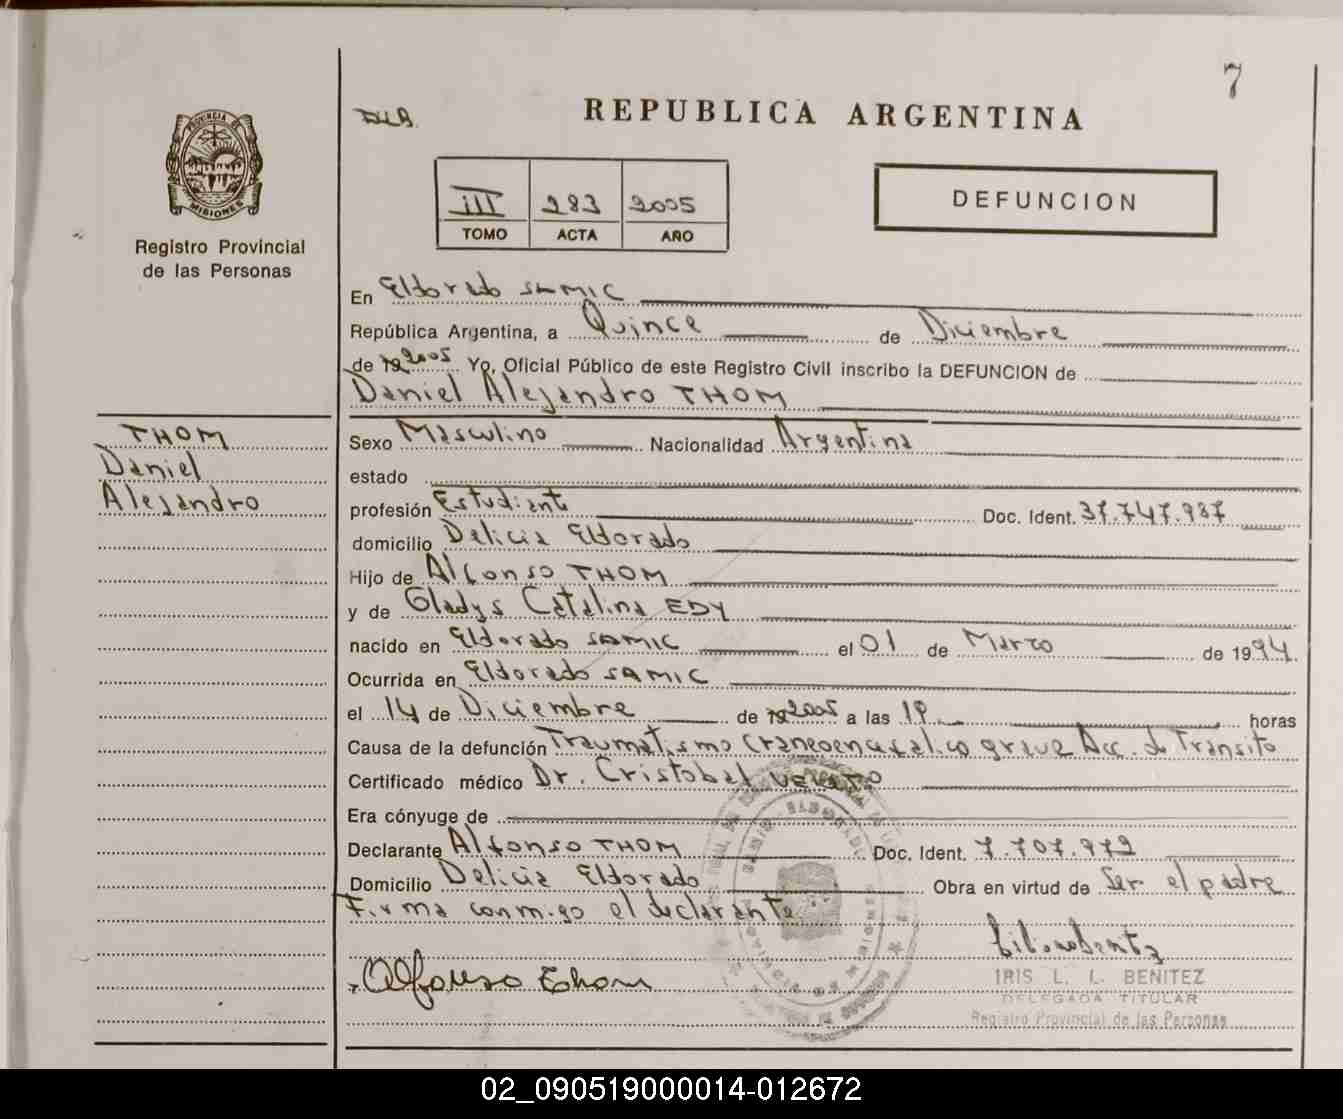 7
REPUBLICA ARGENTINA
PROVINCIA DE
MISIONES
Registro Provincial
de las Personas
III 283 2005
TOMO ACTA AÑO
DEFUNCION
En Eldorado SAMIC
República Argentina, a Quince de Diciembre
de 19 2005 Yo, Oficial Público de este Registro Civil inscribo la DEFUNCION de
Daniel Alejandro THOM
THOM
Daniel
Alejandro
Sexo Masculino Nacionalidad Argentina
estado
profesión Estudiante Doc. Ident. 37.747.987
domicilio Delicia Eldorado
Hijo de Alfonso THOM
y de Gladys Catalina EDY
nacido en Eldorado SAMIC el 01 de Marzo de 1994.
Ocurrida en Eldorado SAMIC
el 14 de Diciembre de 19 2005 a las 19 horas
Causa de la defunción Traumatismo Craneoencefalico grave Acc. de Transito
Certificado médico Dr. Cristobal
Era cónyuge de
Declarante Alfonso THOM Doc. Ident. 7.707.972
Domicilio Delicia Eldorado Obra en virtud de Ser el padre
Firma conmigo el declarante
Alfonso Thom
IRIS L. L. BENITEZ
DELEGADA TITULAR
Registro Provincial de las Personas
02_090519000014-012672